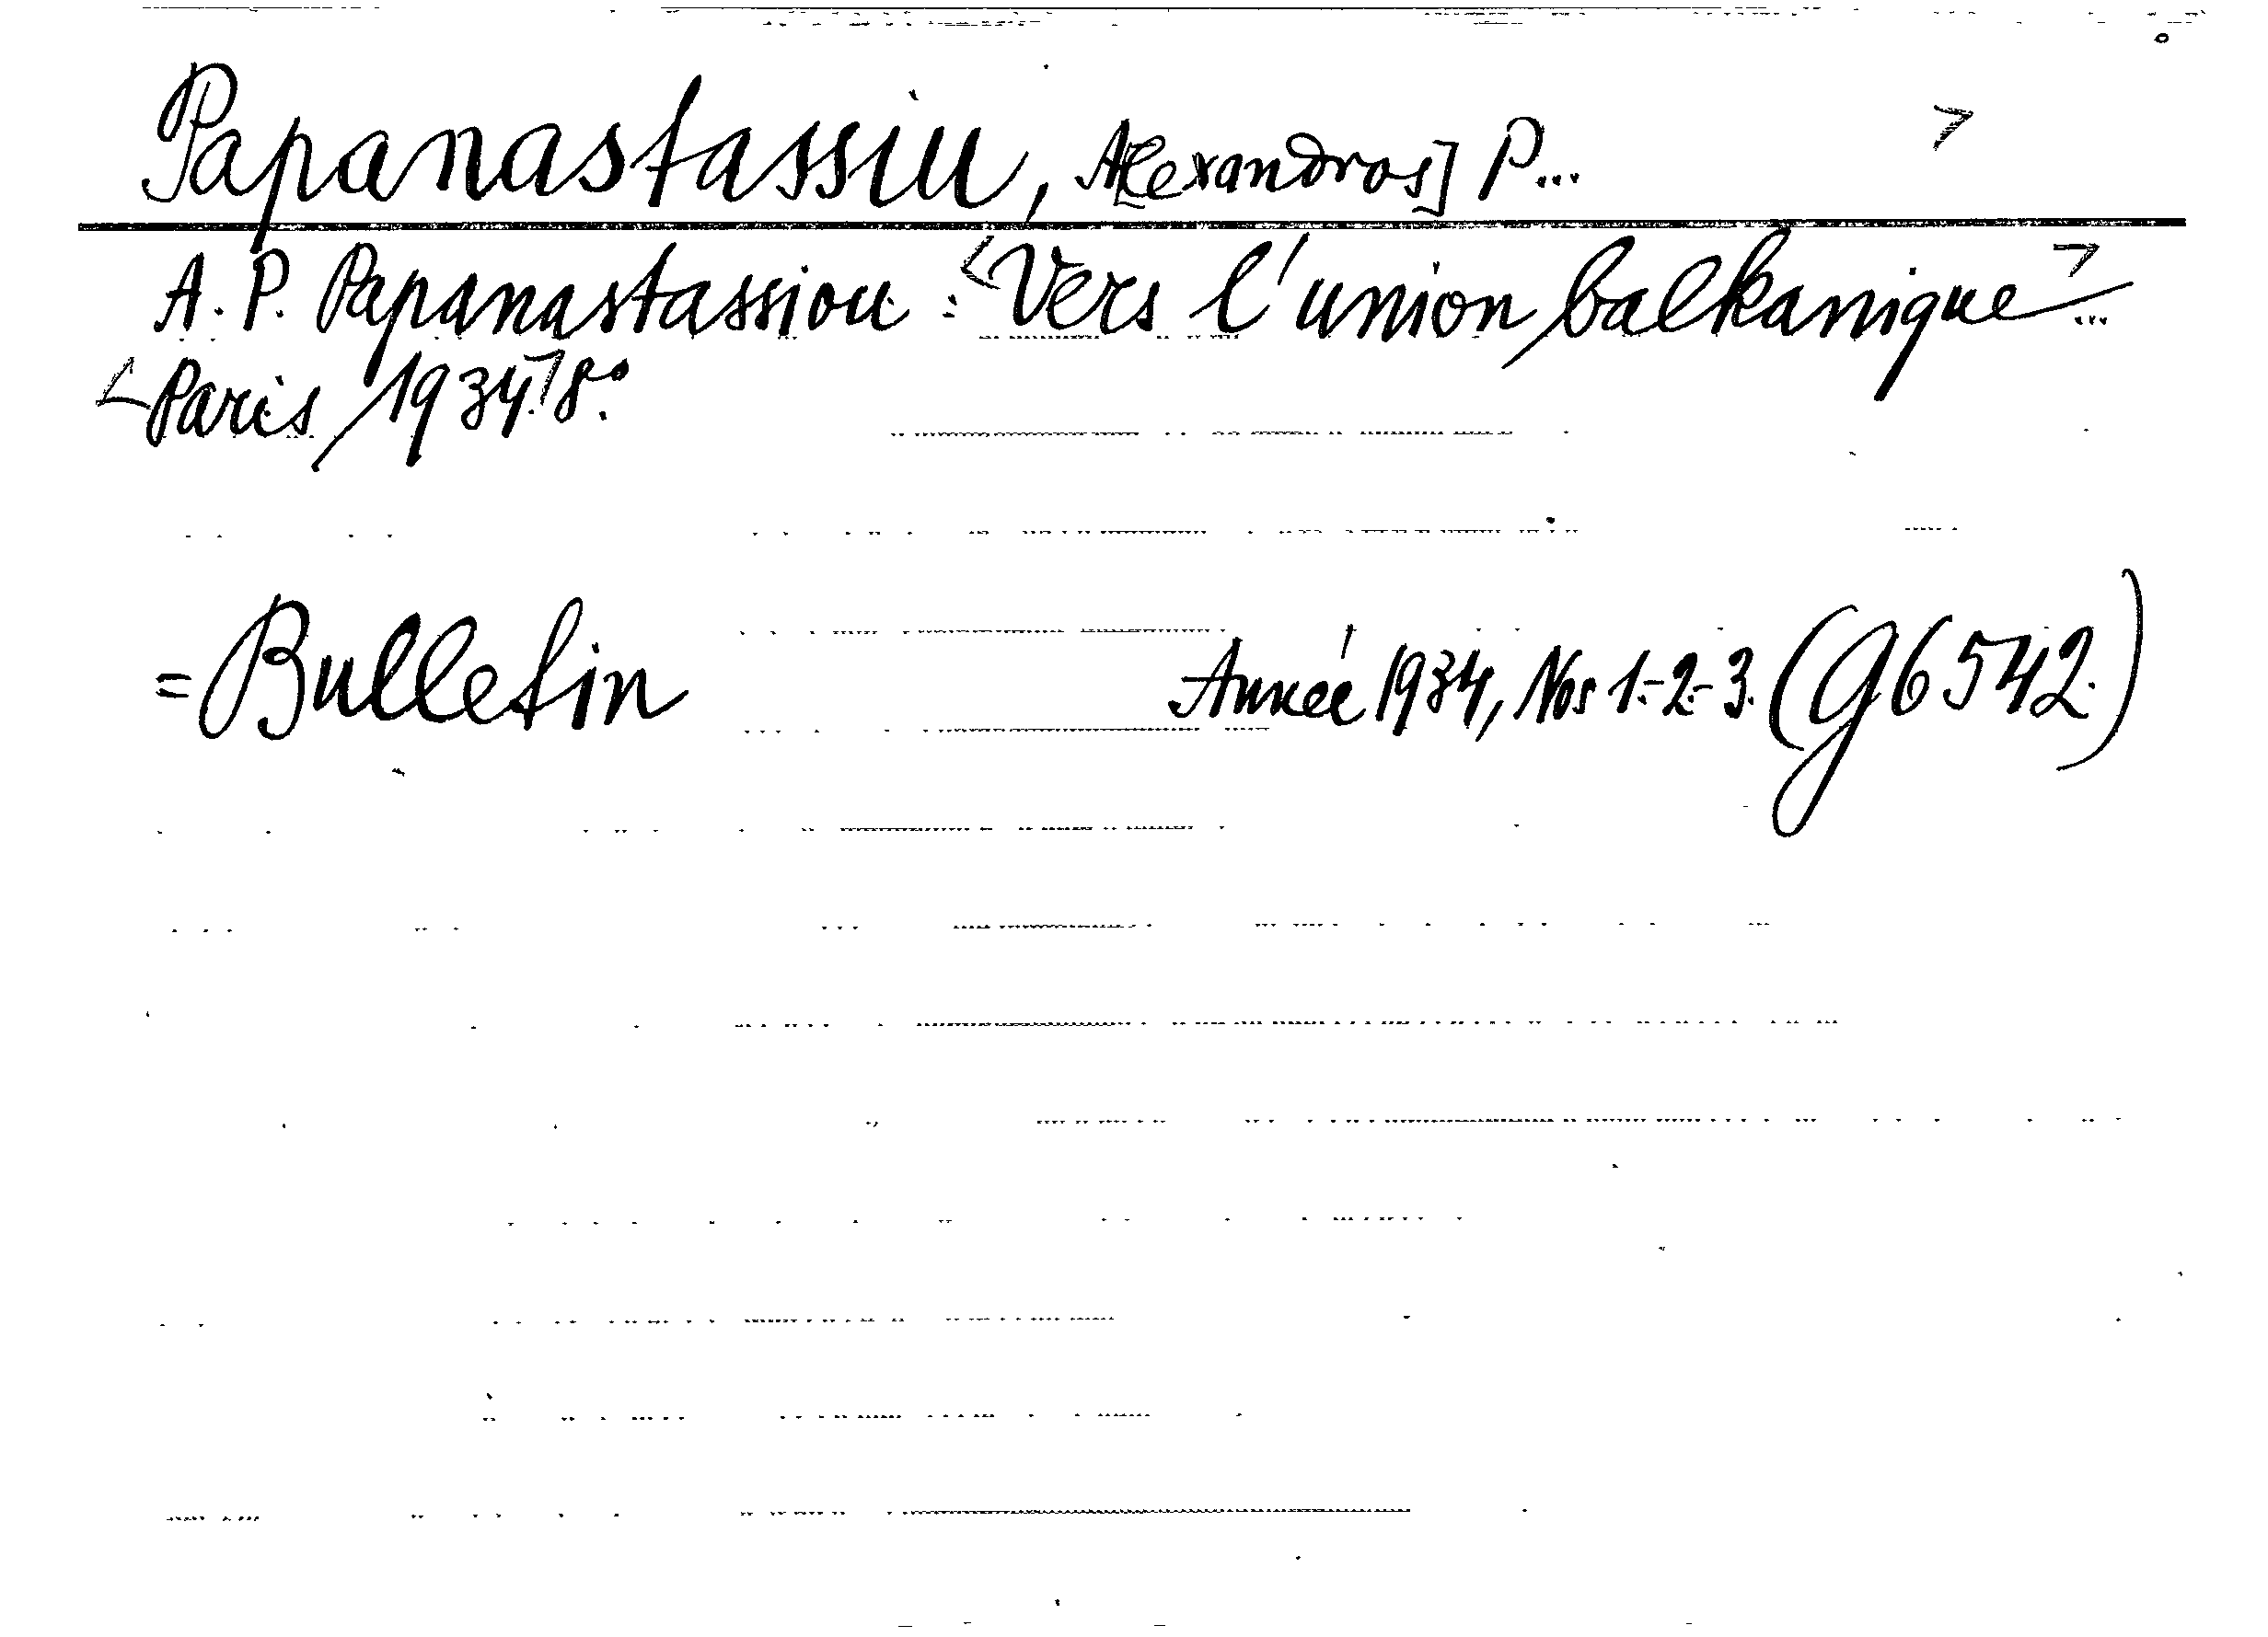 Papanastassiu, A[lexandros] P...
A. P. Papanastassiou: Vers l'union balkanique...
Paris 1934. 8°.
= Bulletin Année 1934, Nos 1.-2.-3. (G6542.)